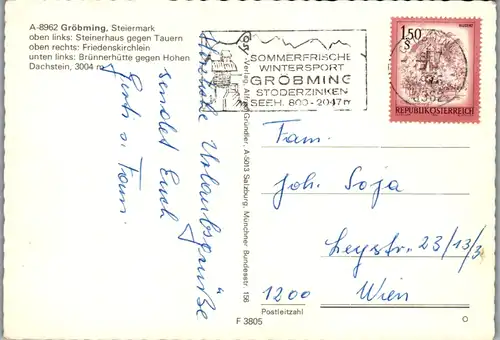 A-8962 Gröbming, Steiermark
oben links: Steinerhaus gegen Tauern
oben rechts: Friedenskirchlein
unten links: Brünnerhütte gegen Hohen
Dachstein, 3004 m
Herzliche Urlaubsgrüße
sendet Euch
Gusti u. Fam.
-Verlag, Alfred Gründler, A-5013 Salzburg, Münchner Bundesstr. 156
SOMMERFRISCHE
WINTERSPORT
GRÖBMING
STODERZINKEN
SEEH. 800-2047 m
1.50
RUST/BGLD.
REPUBLIK ÖSTERREICH
8962
Fam.
Joh. Soja
Leystr. 23/13/3
1200 Wien
Postleitzahl
F 3805